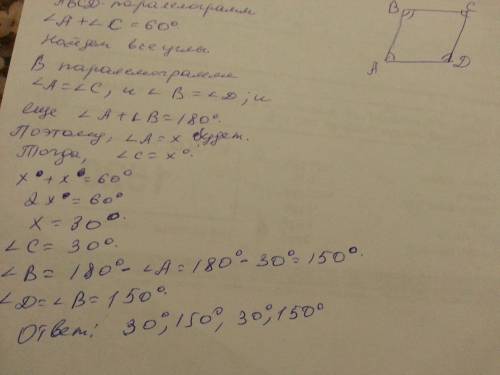 ABCD-параллелограмм
∠A+∠C=60°
Найдем все углы
B C
A D
В параллелограмме
∠A=∠C, и ∠B=∠D; и
еще ∠A+∠B=180°.
Поэтому, ∠A=x° будет.
Тогда, ∠C=x°.
x°+x°=60°
2x°=60°
x=30°.
∠C=30°.
∠B=180°-∠A=180°-30°=150°.
∠D=∠B=150°.
Ответ: 30°, 150°, 30°, 150°